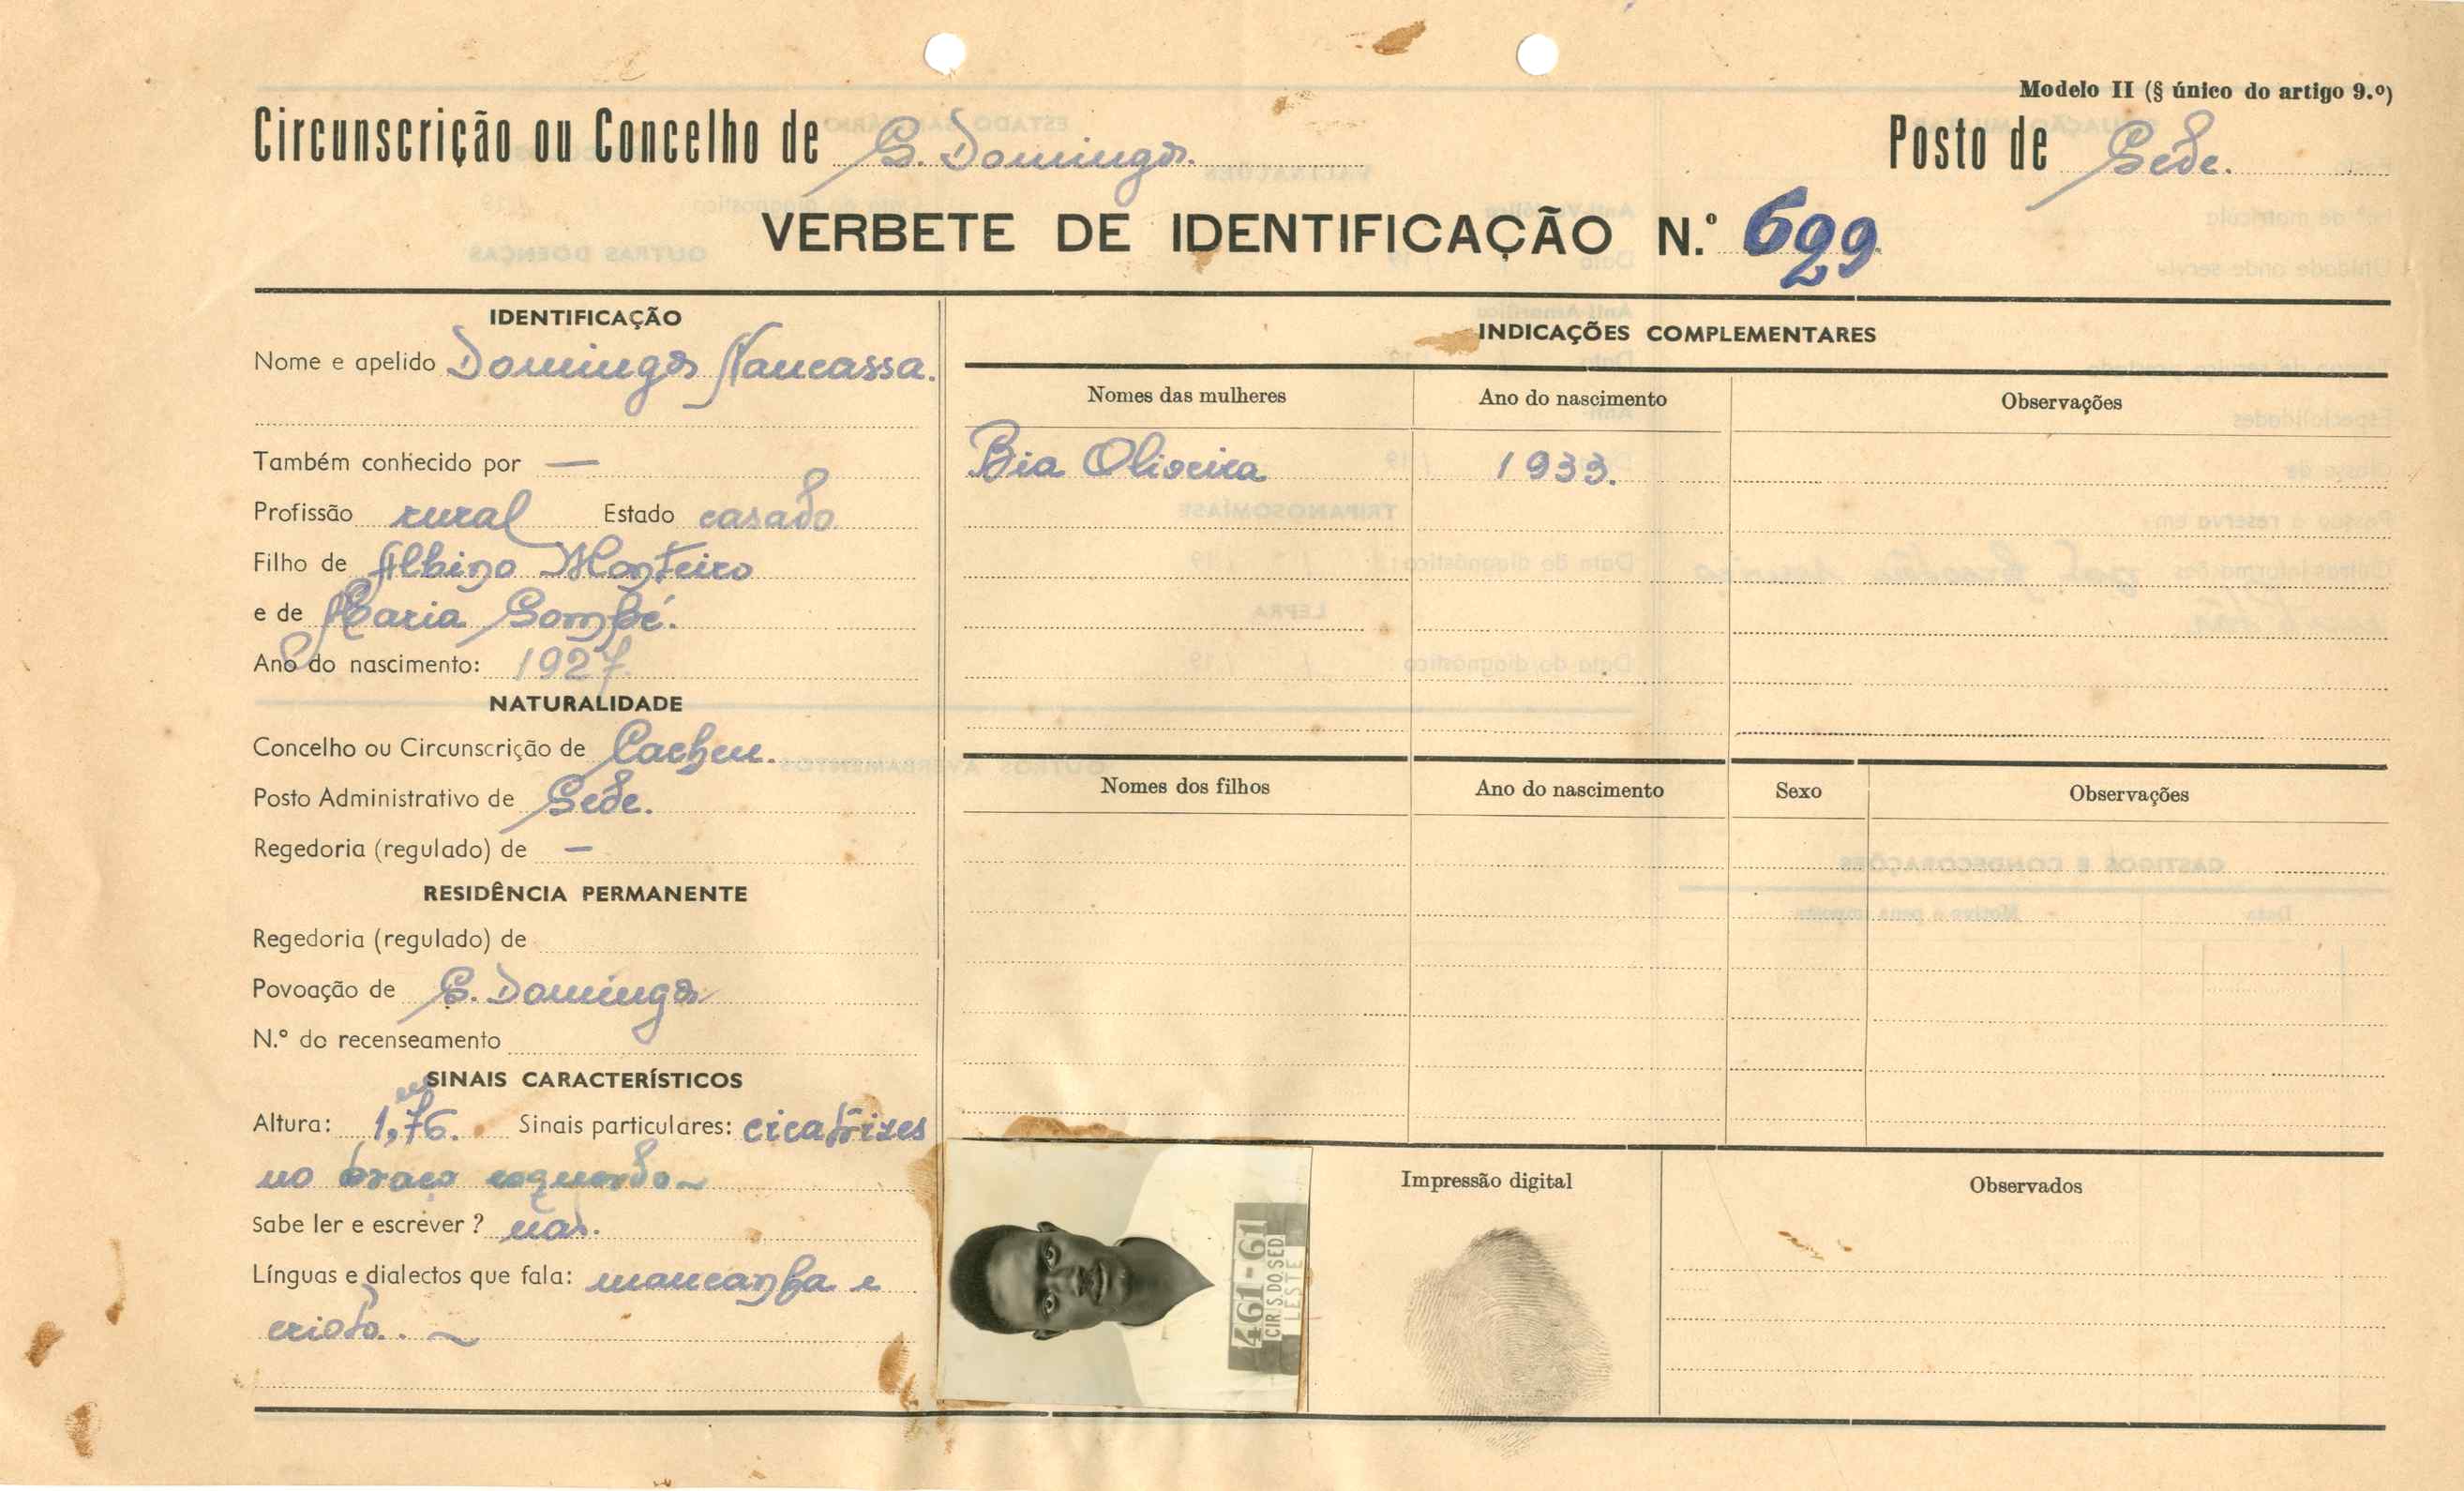 Modelo II (§ único do artigo 9.º)
Circunscrição ou Concelho de S. Domingos. Posto de Sede.
VERBETE DE IDENTIFICAÇÃO N.º 699
IDENTIFICAÇÃO
Nome e apelido Domingos Nancassa.
Também conhecido por —
Profissão rural Estado casado
Filho de Albino Monteiro
e de Maria Gombé.
Ano do nascimento: 1927.
NATURALIDADE
Concelho ou Circunscrição de Cacheu.
Posto Administrativo de Sede.
Regedoria (regulado) de —
RESIDÊNCIA PERMANENTE
Regedoria (regulado) de
Povoação de S. Domingos
N.º do recenseamento
SINAIS CARACTERÍSTICOS
Altura: 1,76. Sinais particulares: cicatrizes
no braço esquerdo ~
Sabe ler e escrever? não.
Línguas e dialectos que fala: mancanha e
criolo. ~
INDICAÇÕES COMPLEMENTARES
Nomes das mulheres Ano do nascimento Observações
Bia Oliveira 1933.
Nomes dos filhos Ano do nascimento Sexo Observações
461-61
CIR S.DO SED
LESTE
Impressão digital
Observados